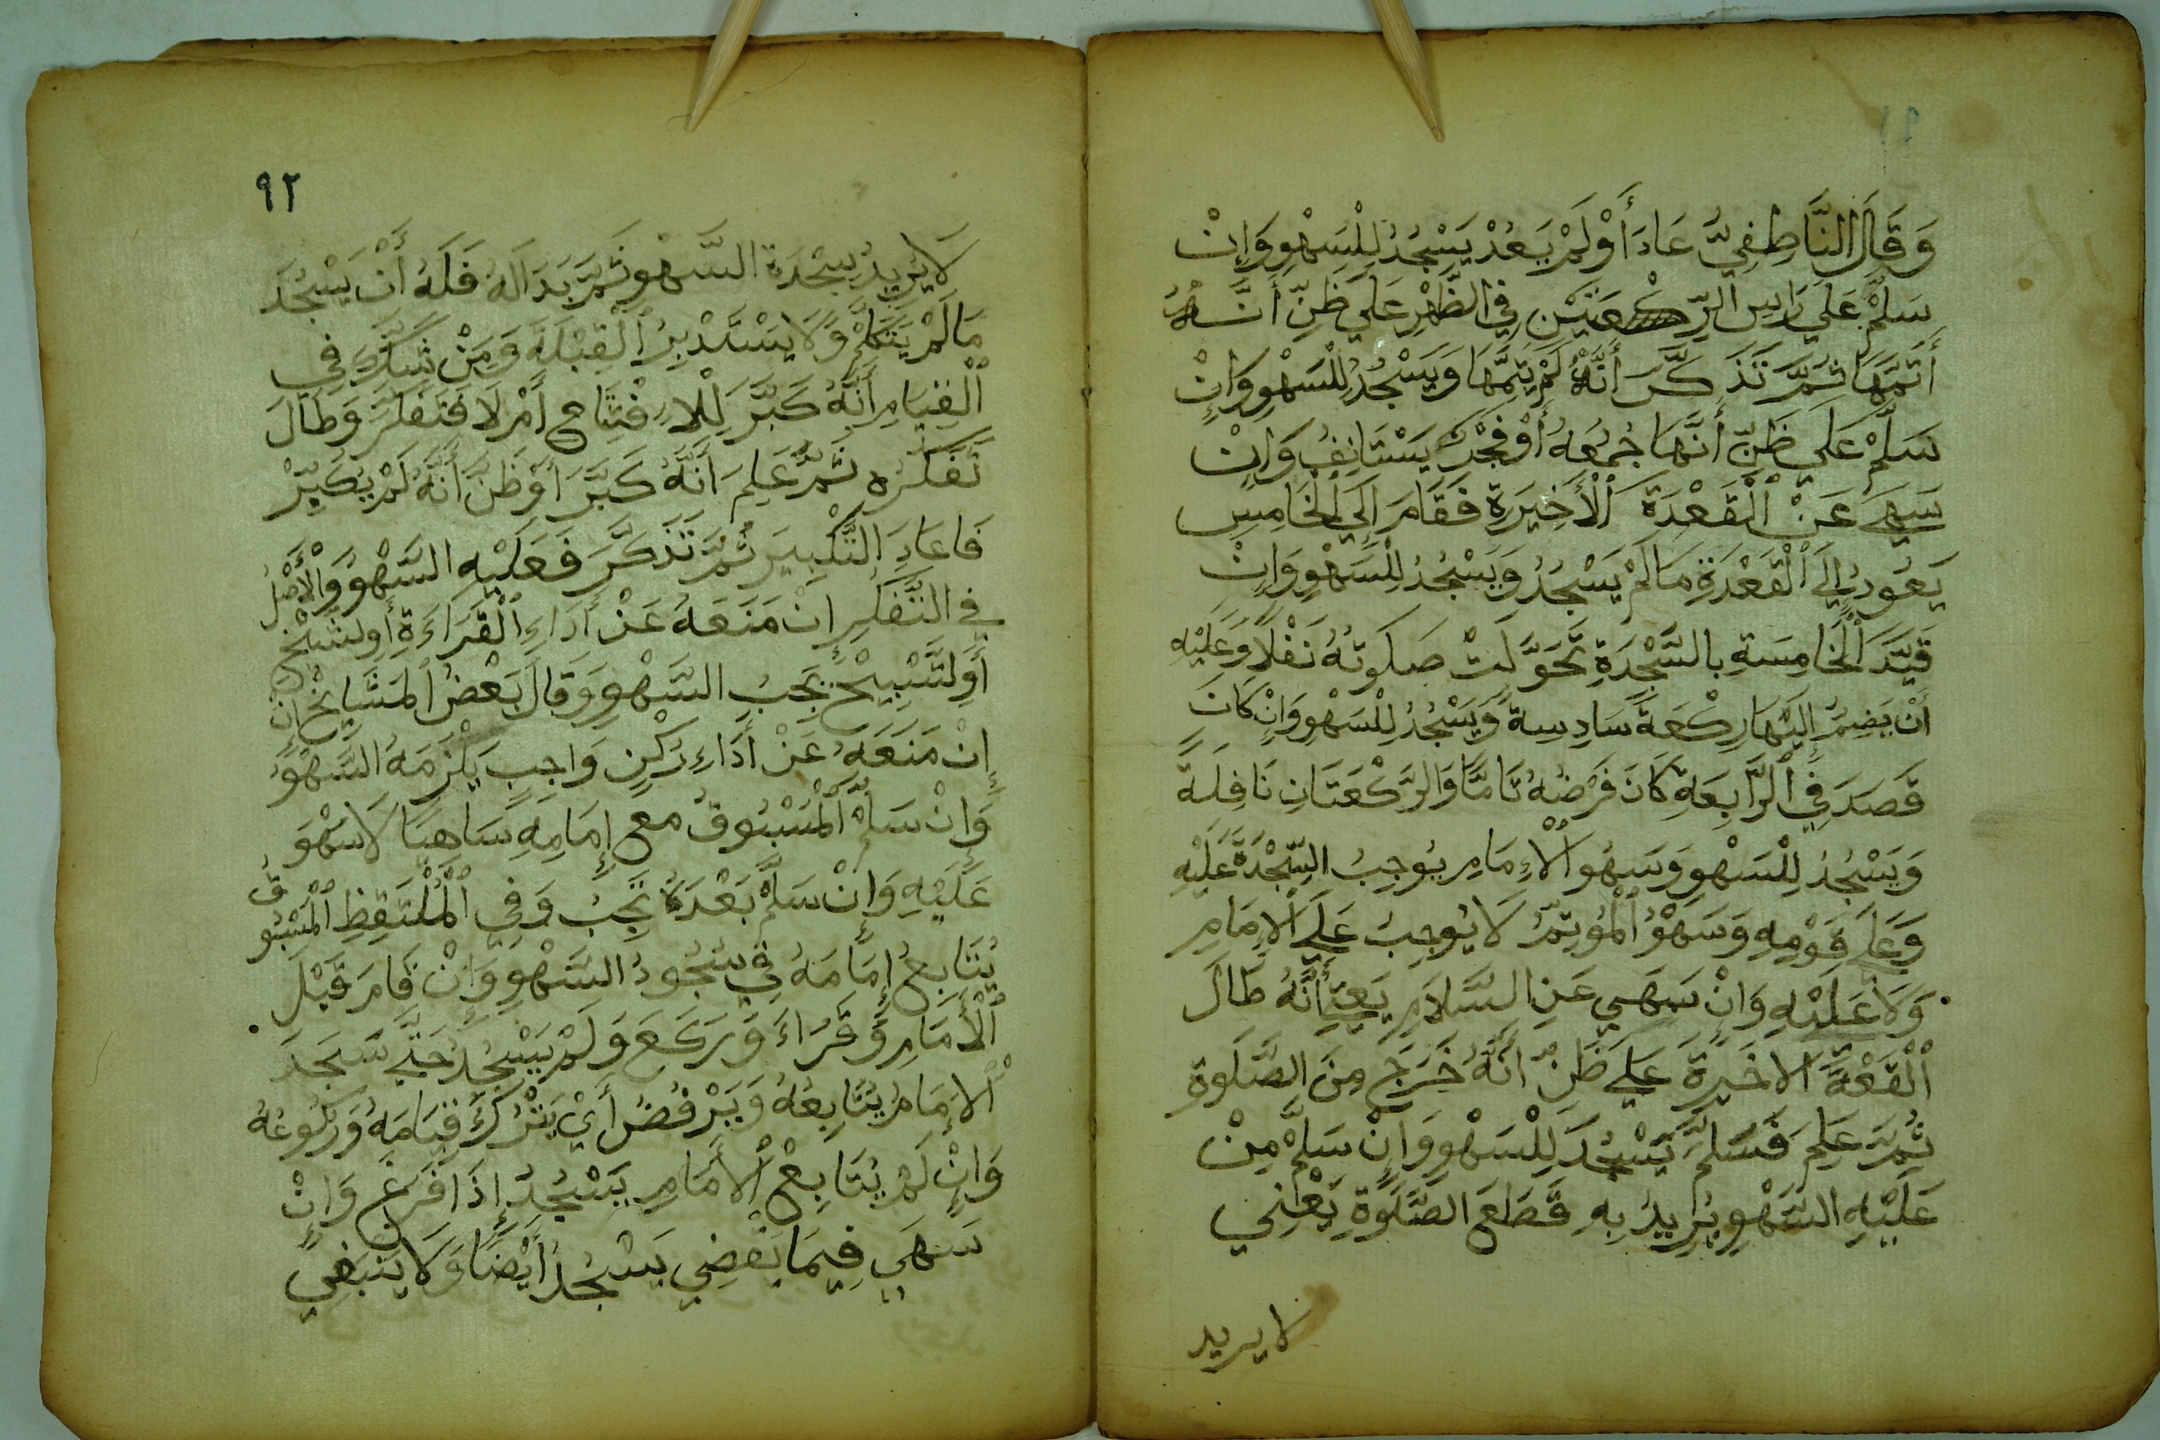 وَقَالَ النَّاطِفِيُّ عَادَ أَوْلَمْ يَعُدْ يَسْجُدُ لِلْسَهْوِ وَاِنْ
سَلَّمْ عَلَي رَاسِ الرِّكْعَتَيْنِ فِي الظُّهْرِ عَلَي ظَنِّ أَنَّهُ
أَتَمَّهَا ثُمَّ تَذَكَّرَ أَنَّهُ لَمْ يَتِمَّهَا وَيَسْجُدُ لِلْسَهْوِ وَاِنْ
سَلَّمْ عَلَي ظَنِّ أَنَّهَا جُمُعَهُ أَوْ فَجْرَ يَسْتَانِفُ وَاِنْ
سَهَي عَنْ الْقَعْدَةَ الْأَخِيَرةِ فَقَامَ اِلَي الْخَامِسِ
يَعُودُ اِلَي الْقَعْدَةِ مَا لَمْ يَسْجُدُ وَيَسْجُدُ لِلْسَهْوِ وَاِنْ
قَيَّدَ الْخَامِسَةِ بِالسَّجْدَةِ تَحَوَّلَتْ صَلَوتُهُ نَفْلًا وَعَلَيْهِ
أَنْ يَضِمُّ اِلَيْهَا رِكْعَةً سَادِسِةً وَيَسْجُدُ لِلْسَهْوِ وَاِنْ كَانَ
قَصَدَ فِي الرَّابِعَةِ كَانَ فَرْضُهُ تَامًّا وَالرَّكْعَتَانِ نَافِلَةً
وَيَسْجُدُ لِلْسَهْوِ وَسَهُو الْاِمَامِ يُوجِبُ السِّجْدَةَ عَلَيْهِ
وَعَلَي قَوْمِهِ وَسَهْوُ الْمُوتِمُّ لَا يُوجِبُ عَلَي الْاِمَامِ
وَلَا عَلَيْهِ وَاِنْ سَهَي عَنِ السَّلَامِ يَعْنِي أَنَّهُ طَالَ
الْقَعْدَةَ الاَخِيرَةَ عَلَي ظَنٍّ أَنَّهُ خَرَجَ مِنَ الصَّلَوةِ
ثُمَّ عَلِمَ فَسَلَّمَ يَسْجُدَ لِلْسَهْوِ وَاِنْ سَلَّمْ مِنْ
عَلَيْهِ السَّهْوِ يُرِيدُ بِهِ قَطَعَ الصَّلَوةِ يَعْنِي
لا يريد
٩٢
لَا يُرِيدُ سِجْدَةَ السَّهْوِ ثُمَّ بَدَا لَهُ فَلَهُ أَنْ يَسْجُدَ
مَا لَمْ يَتَكَلَّمْ وَلَا يَسْتَدْبِرُ الْقِبْلَةَ وَمَنْ شَكَّ فِي
الْقِيَامِ أَنَّهُ كَبَّرَ لِلْاِفْتِتَاحِ أَمْ لَا فَتَفَكَّرَ وَطَالَ
تَفَكُّرُه ثُمَّ عَلِمَ أَنَّهُ كَبَّرَ أَوْ ظَنَّ أَنَّهُ لَمْ يُكَبِّرْ
فَاعَادَ التَّكْبِيرَ ثُمَّ تَذَكَّرَ فَعَلَيْهِ السَّهْوُ وَالْأَصْلُ
فِي التَّفَكُّرِ اِنْ مَنَعَهُ عَنْ أَدَاءِ الْقَرَاءَةِ
أَوِ لتَّسْبِيْحِ يَجِبُ السَّهْوِ وَقَالَ بَعْضُ الْمَشَايِخْ اِنْ
اِنْ مَنَعَهُ عَنْ أَدَاءِ رُكْنٍ وَاجِبٍ يَلْزَمَهُ السَّهْوُ
وَاِنْ سَلَّمْ الْمَسْبُوقُ مع اِمَامِهِ سَاهِيًا لَا سَهْوَ
عَلَيْهِ وَاِنْ سَلَّمْ بَعْدَهُ يَجِبُ وَفِي الْمُلْتَقِظِ الْمَسْبُوقُ
يُتَابِعُ اِمَامَهُ فِي سُجُودُ السَّهْوِ وَاِنْ قَامَ قَبْلَ
الْأَمَامِ وَقَرُاءَ وَرَكَعَ وَلَمْ يَسْجُدُ حَتَّي سَجَدَ
الْاِمَامُ يُتَابِعُهُ وَيَرْفُضُ أَيْ يَتْرُكَ قِيَامَهُ وَرُكُوعُهُ
وَاِنْ لَمْ يُتَابِعْ الْأَمَامِ يَسْجُدُ اِذَا فَرَغَ وَاِنْ
سَهَي فِيمَا يَقْضِي يَسْجُدُ أَيْضًا وَلَا يَنْبَغِي